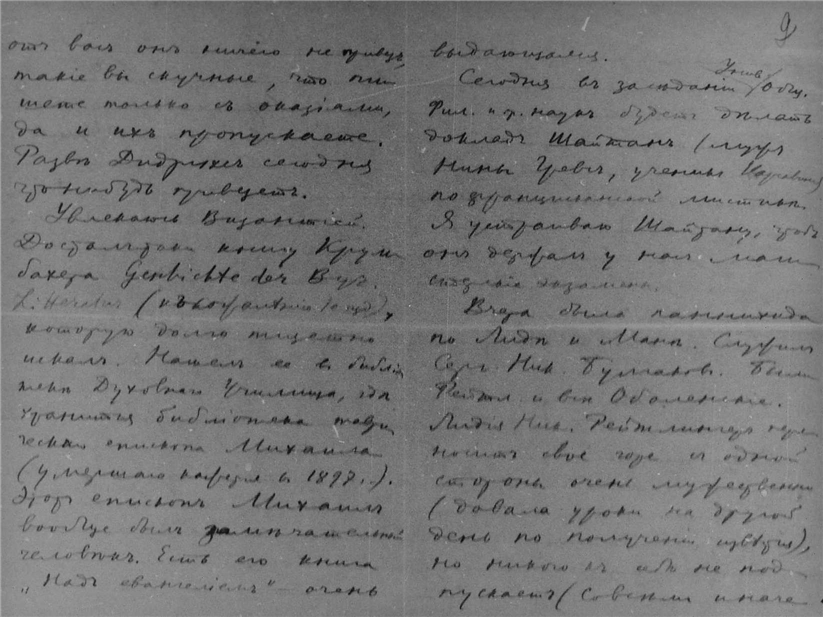 отъ васъ онъ ничего не привезъ,
такіе вы скучные, что пи-
шете только съ оказіами,
да и ихъ пропускаете.
Развѣ Дидрихсъ сегодня
что нибудь привезетъ.
Увлекаюсь Византіей.
Досталъ таки книгу Крум-
бахера Geschichte der Byz.
Litteratur (
которую долго тщетно
искалъ. Нашелъ ее въ библіо-
текѣ Духовнаго Училища, гдѣ
хранится библіотека таври-
ческаго епископа Михаила
(умершаго въ 1897 г.).
Этотъ епископъ Михаилъ
вообще былъ замѣчательный
человѣкъ. Есть его книга
„Надъ евангеліемъ“ – очень
9
выдающаяся.
Сегодня въ засѣданіи Унив. Общ.
Фил. и др. наукъ будетъ дѣлать
докладъ Шайтанъ (мужъ
Нины Гревсъ, ученикъ
по францисканской мистикѣ.
Я устраиваю Шайтану, чтобъ
онъ держалъ у насъ маги-
стерскіе экзамены.
Вчера была паннихида
по Лидѣ и Манѣ. Служилъ
Серг. Ник. Булгаковъ. Были
Рейтл. и всѣ Оболенскіе.
Лидія Ник. Рейтлингеръ пере-
носитъ свое горе съ одной
стороны очень мужественно
(давала уроки на другой
день по полученіи извѣстія),
но никого къ себѣ не под-
пускаетъ (совсѣмъ иначе